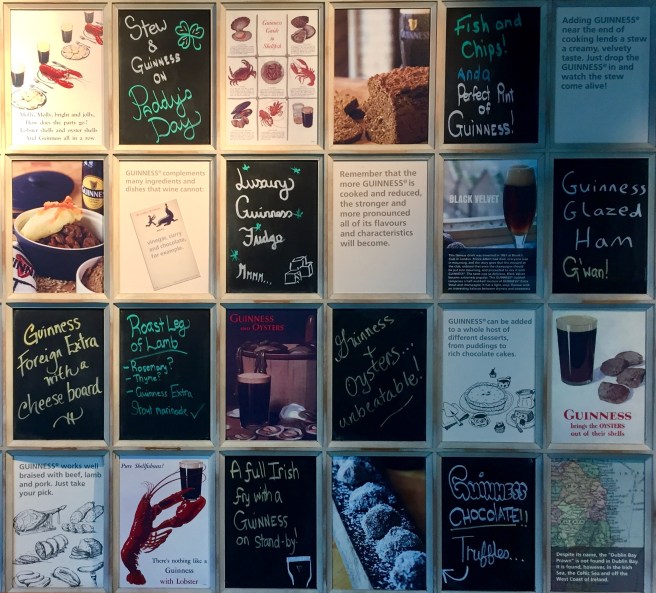 Molly, Molly, bright and jolly,
How does the party go?
Lobster shells and oyster shells
And Guinness all in a row.
Stew
&
Guinness
on
Paddy's
Day
Guinness
Guide to
Shellfish
GUINNESS
Fish and
Chips!
And a
Perfect Pint
of
Guinness!
Adding GUINNESS®
near the end of
cooking lends a stew
a creamy, velvety
taste. Just drop the
GUINNESS® in and
watch the stew
come alive!
GUINNESS
GUINNESS® complements
many ingredients and
dishes that wine cannot,
vinegar, curry
and chocolate,
for example.
Luxury
Guinness
Fudge
Mmmm...
Remember that the
more GUINNESS® is
cooked and reduced,
the stronger and
more pronounced
all of its flavours
and characteristics
will become.
BLACK VELVET
Guinness
Glazed
Ham
G'wan!
Guinness
Foreign Extra
with a
cheese board
Roast Leg
of Lamb
- Rosemary?
- Thyme?
- Guinness Extra
Stout marinade ✓
GUINNESS
AND OYSTERS
Guinness
+
Oysters...
unbeatable!
GUINNESS® can be added
to a whole host of
different desserts,
from puddings to
rich chocolate cakes.
GUINNESS
brings the OYSTERS
out of their shells
GUINNESS® works well
braised with beef, lamb
and pork. Just take
your pick.
Pure Shellfishness!
There's nothing like a
Guinness
with Lobster
A full Irish
fry with a
GUINNESS
on stand-by!
GUINNESS
CHOCOLATE!!
Truffles...
Despite its name, the "Dublin Bay
Prawn" is not found in Dublin Bay.
It is found, however, in the Irish
Sea, the Celtic Sea and off the
West Coast of Ireland.